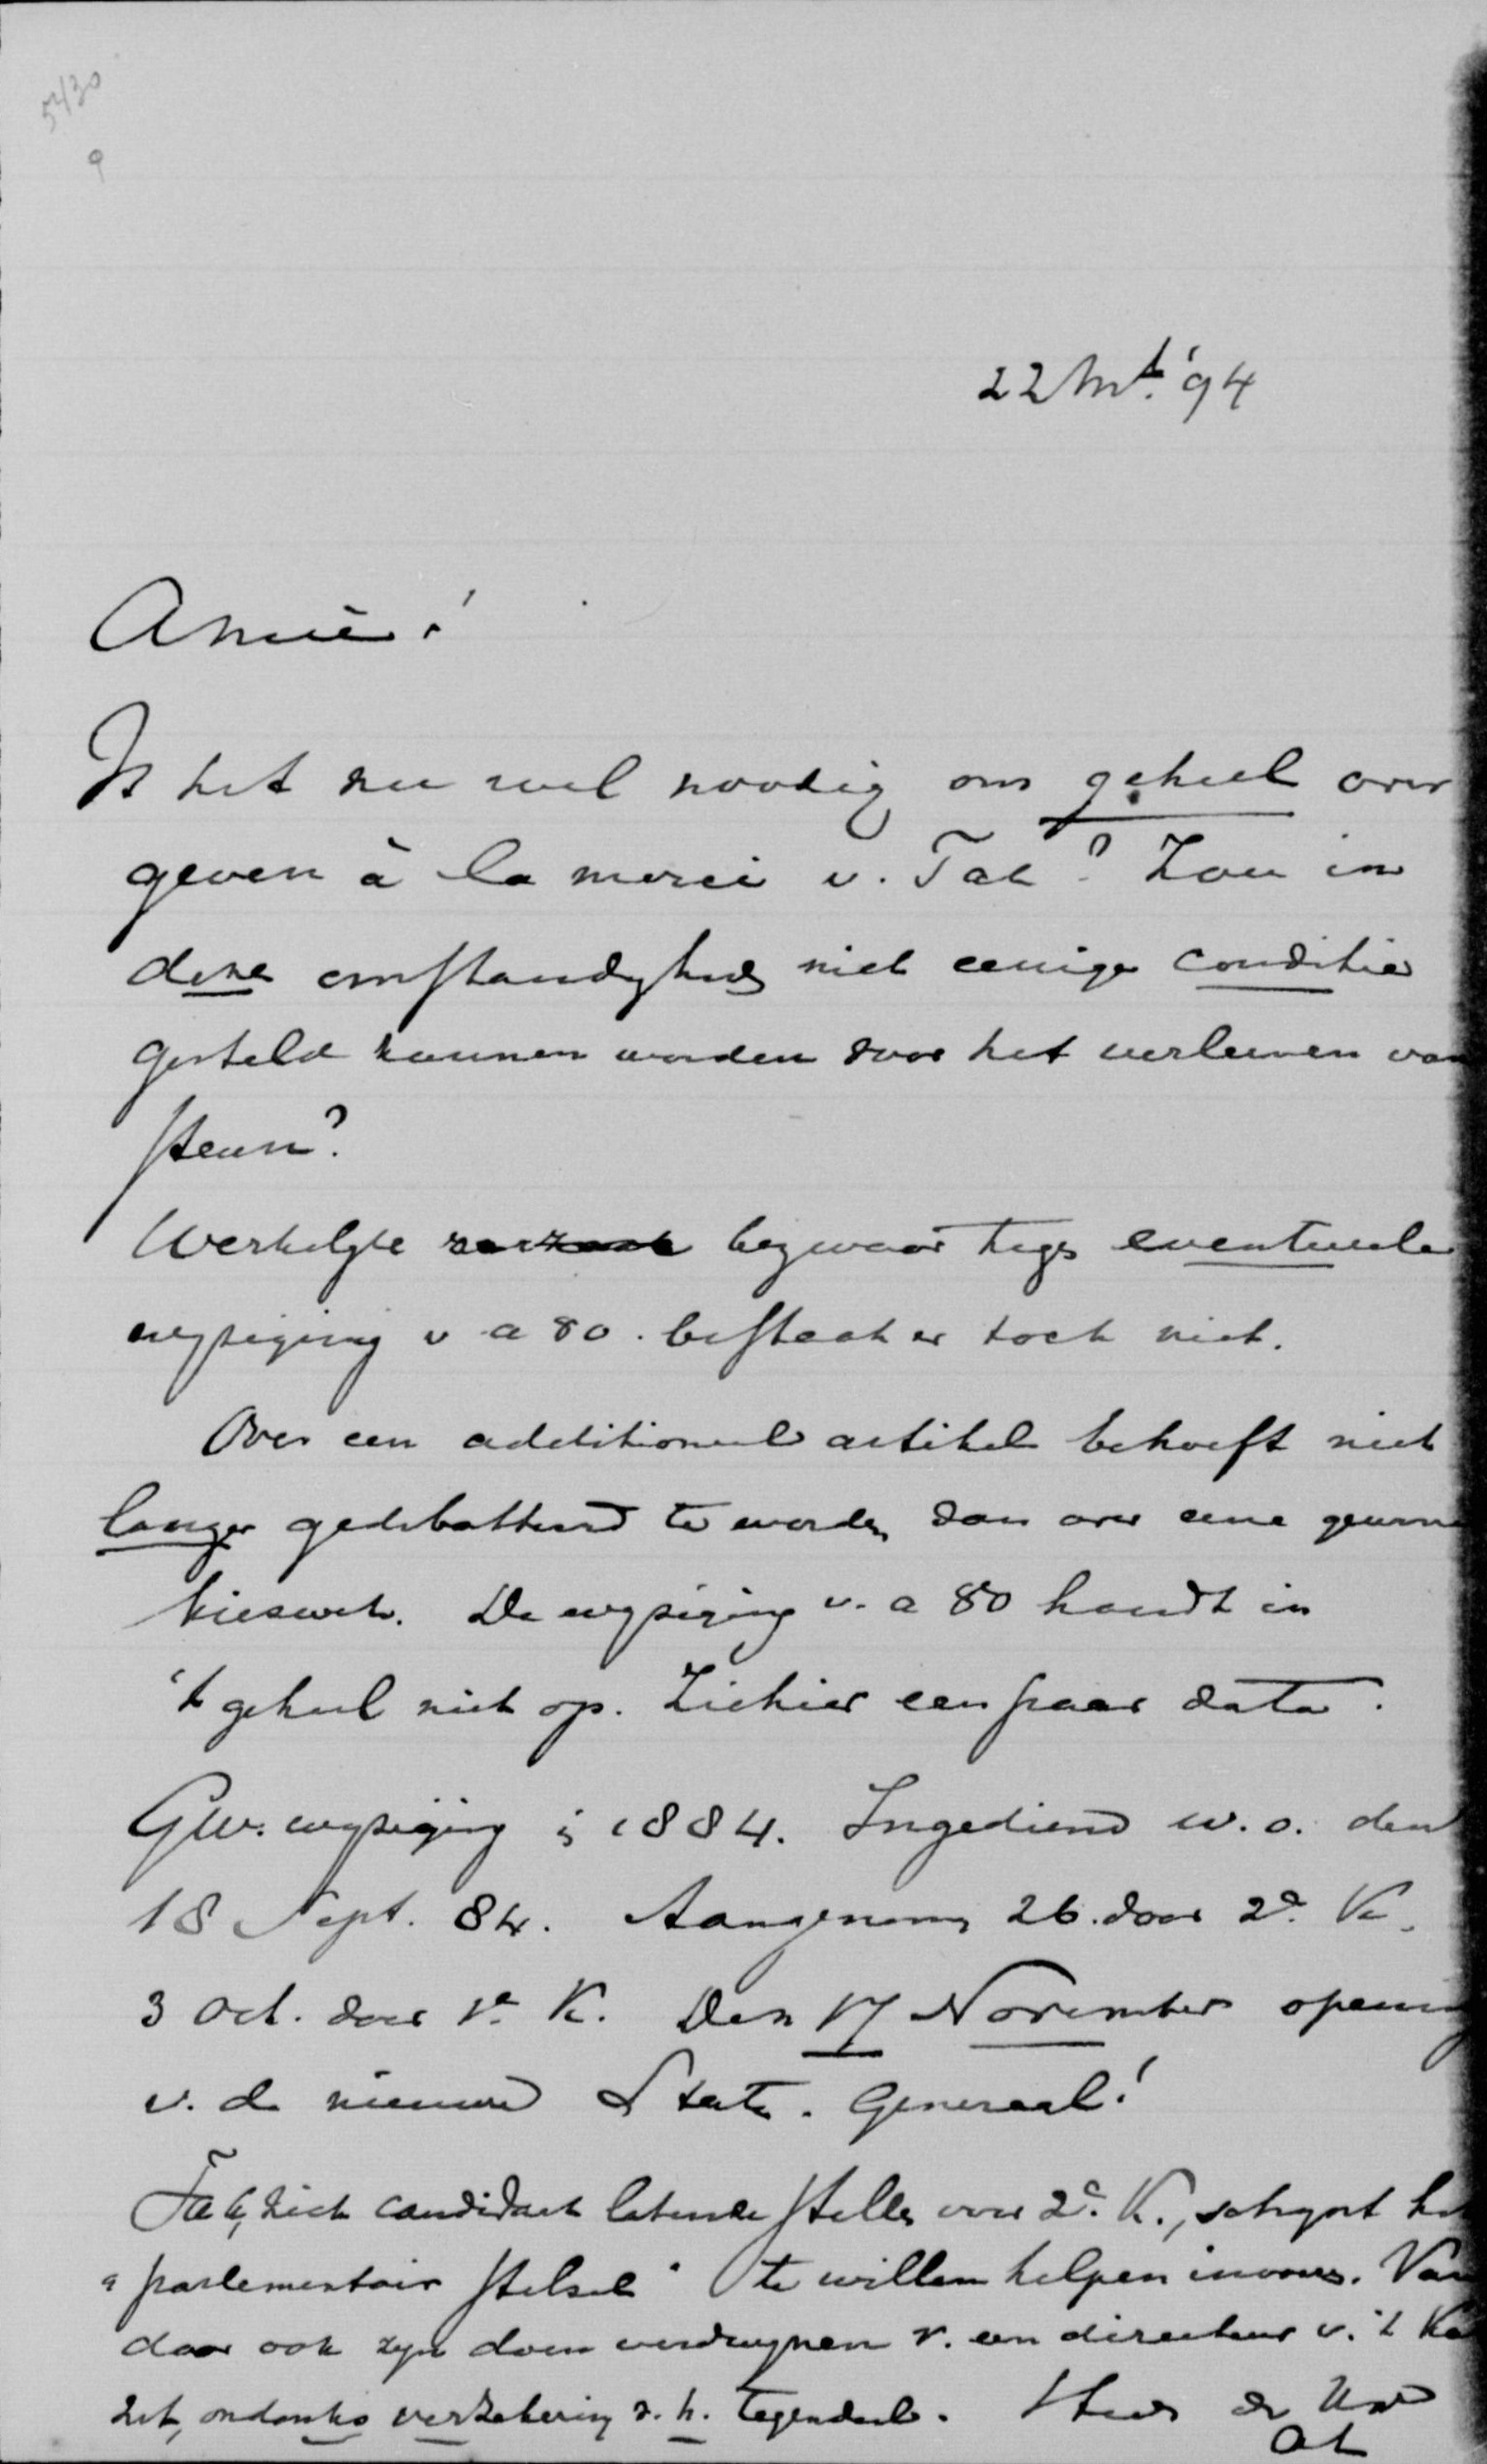 5430
9
22 Mrt. '94
Amice!
Is het nu wel noodig om geheel over
geven à la merci v. Tak? Zou in
deze omstandighed niet eenige conditie
gesteld kunnen worden voor het verleenen van
steun?
Werkelyke bezwaar tegen eventueele
wyziging v a 80. bestaat er toch niet.
Over een additioneel artikel behoeft niet
langer gedebatteerd te worden dan over eene gewone
kieswet. De wyziging v. a 80 houdt in
't geheel niet op. Ziehier een paar data.
Gw. wyziging in 1884. Ingediend w. o. den
18 Sept. 84. Aangenomen 26. door 2e. K.
3 Oct. door 1e. K. Den 17 November opening
v. de nieuwe State. Generaal!
Tak, zich candidaat latende stellen voor 2e. K., schynt het
"parlementair stelsel" te willen helpen invoeren. Van
daar ook zyn doen verdwynen v. een directeur v. 't Ka
zet, ondanks verzekering v. h. tegendeel. Steeds de Uw